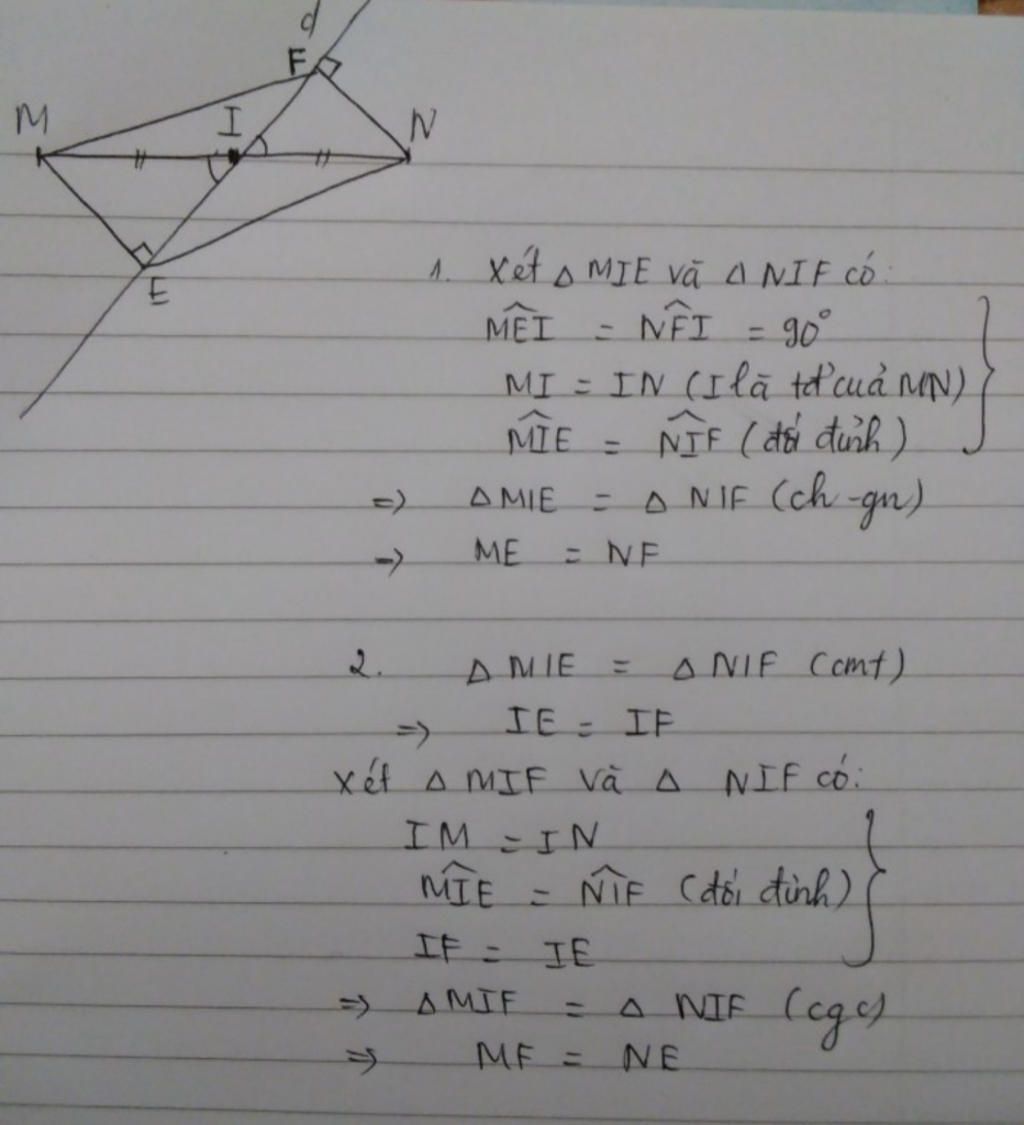 d
F
M
I
N
E
1. Xét △ MIE và △ NIF có:
MÊI = NF̂I = 90°
MI = IN (I là tđ' củả MN)
MÎE = NÎF (đối đỉnh)
=> △ MIE = △ NIF (ch-gn)
=> ME = NF
2. △ MIE = △ NIF (cmt)
=> IE = IF
Xét △ MIF và △ NIF có:
IM = IN
MÎE = NÎF (đối đỉnh)
IF = IE
=> △ MIF = △ NIF (cgc)
=> MF = NE